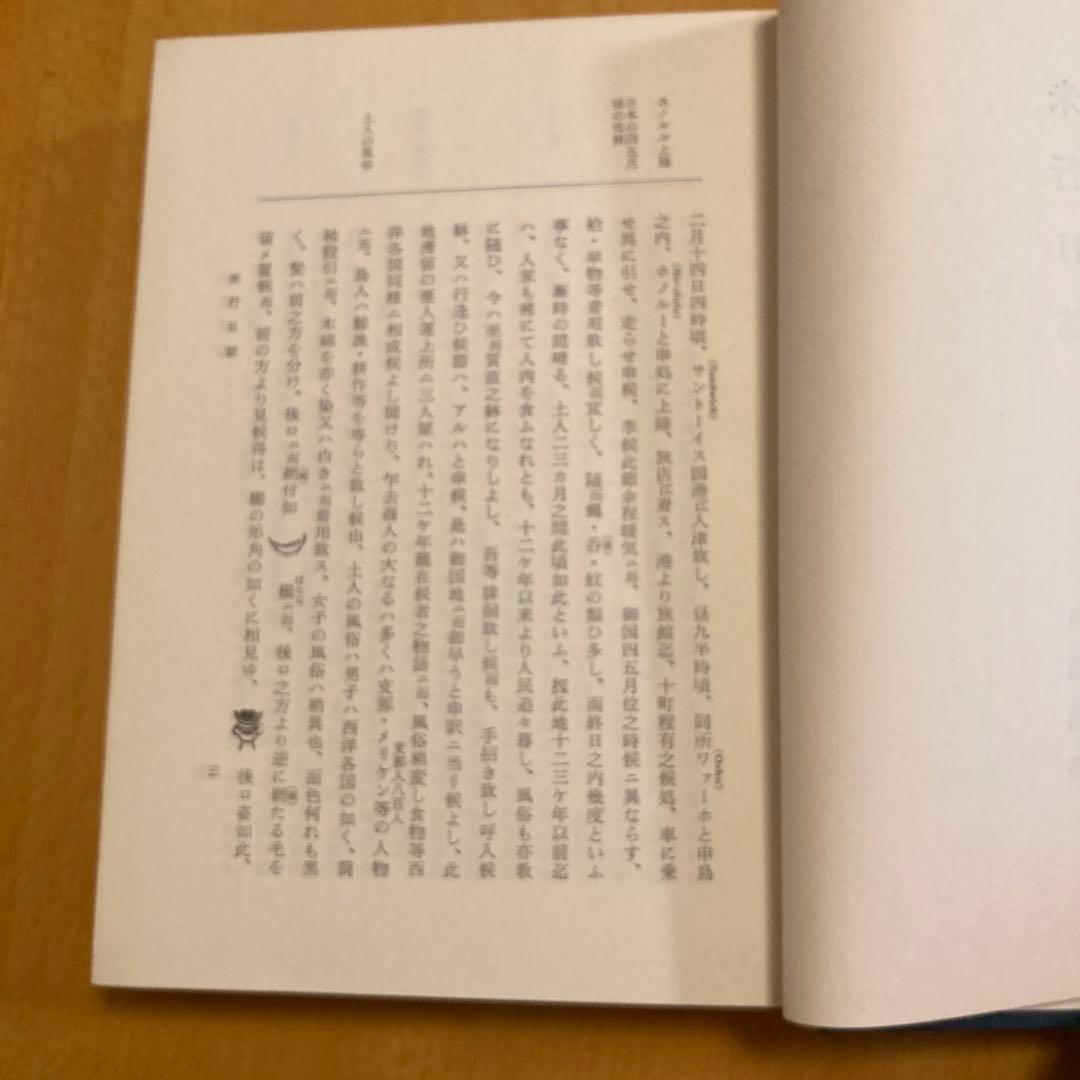 ホノルル上陸
日本の四五月
頃の気候
土人の風俗
二月十四日四時頃、サントーイス国港江入津致し、昼九半時頃、同所ワァーホと申島
(Sandwich)
(Oahu)
之内、ホノルーと申処に上陸、旅店江着ス、港より旅館迄、十町程有之候処、車に乗
(Honolulu)
せ馬に引せ、走らせ申候、季候此節余程暖気ニ而、御国四五月位之時候ニ異ならす、
袷・単物等着用致し候而宜しく、随而蠅・蚤・蚊の類ひ多し、雨終日之内幾度といふ
事なく、暫時の間晴る、土人二三カ月之間此頃如此といふ、扨此地十二三ケ年以前迄
ハ、人家も稀にて人肉を食ふなれとも、十二ケ年以来より人民追々暮し、風俗も亦教
に随ひ、今ハ至而質直之躰になりしよし、吾等徘徊致し候而も、手招き致し呼入候
躰、又ハ行逢ひ候節ハ、アルハと申候、是ハ御国地ニ而御早うと申訳ニ当り候よし、此
地滞留の亜人運上所ニ三人雇ハれ、十二ケ年在候者之物語ニ而、風俗稍変し食物等西
洋各国同様ニ相成候よし聞けり、乍去商人の大なるハ多くハ支那・メリケン等の人物
支那人八百人
ニ而、島人ハ鯨漁・耕作等を専らと致し候由、土人の風俗ハ男子ハ西洋各国の如く、筒
袖股引ニ而、木綿を赤く染又ハ白きニ而着用致ス、女子の風俗ハ稍異也、面色何れも黒
く、髪ハ前之方を分け、後ロニ而網付如 櫛ニ而、後ロ之方より逆に網たる毛を
留メ置候而、前の方より見候得は、櫛の形角の如くに相見ゆ、 後ロ姿如此、
米行日誌
三